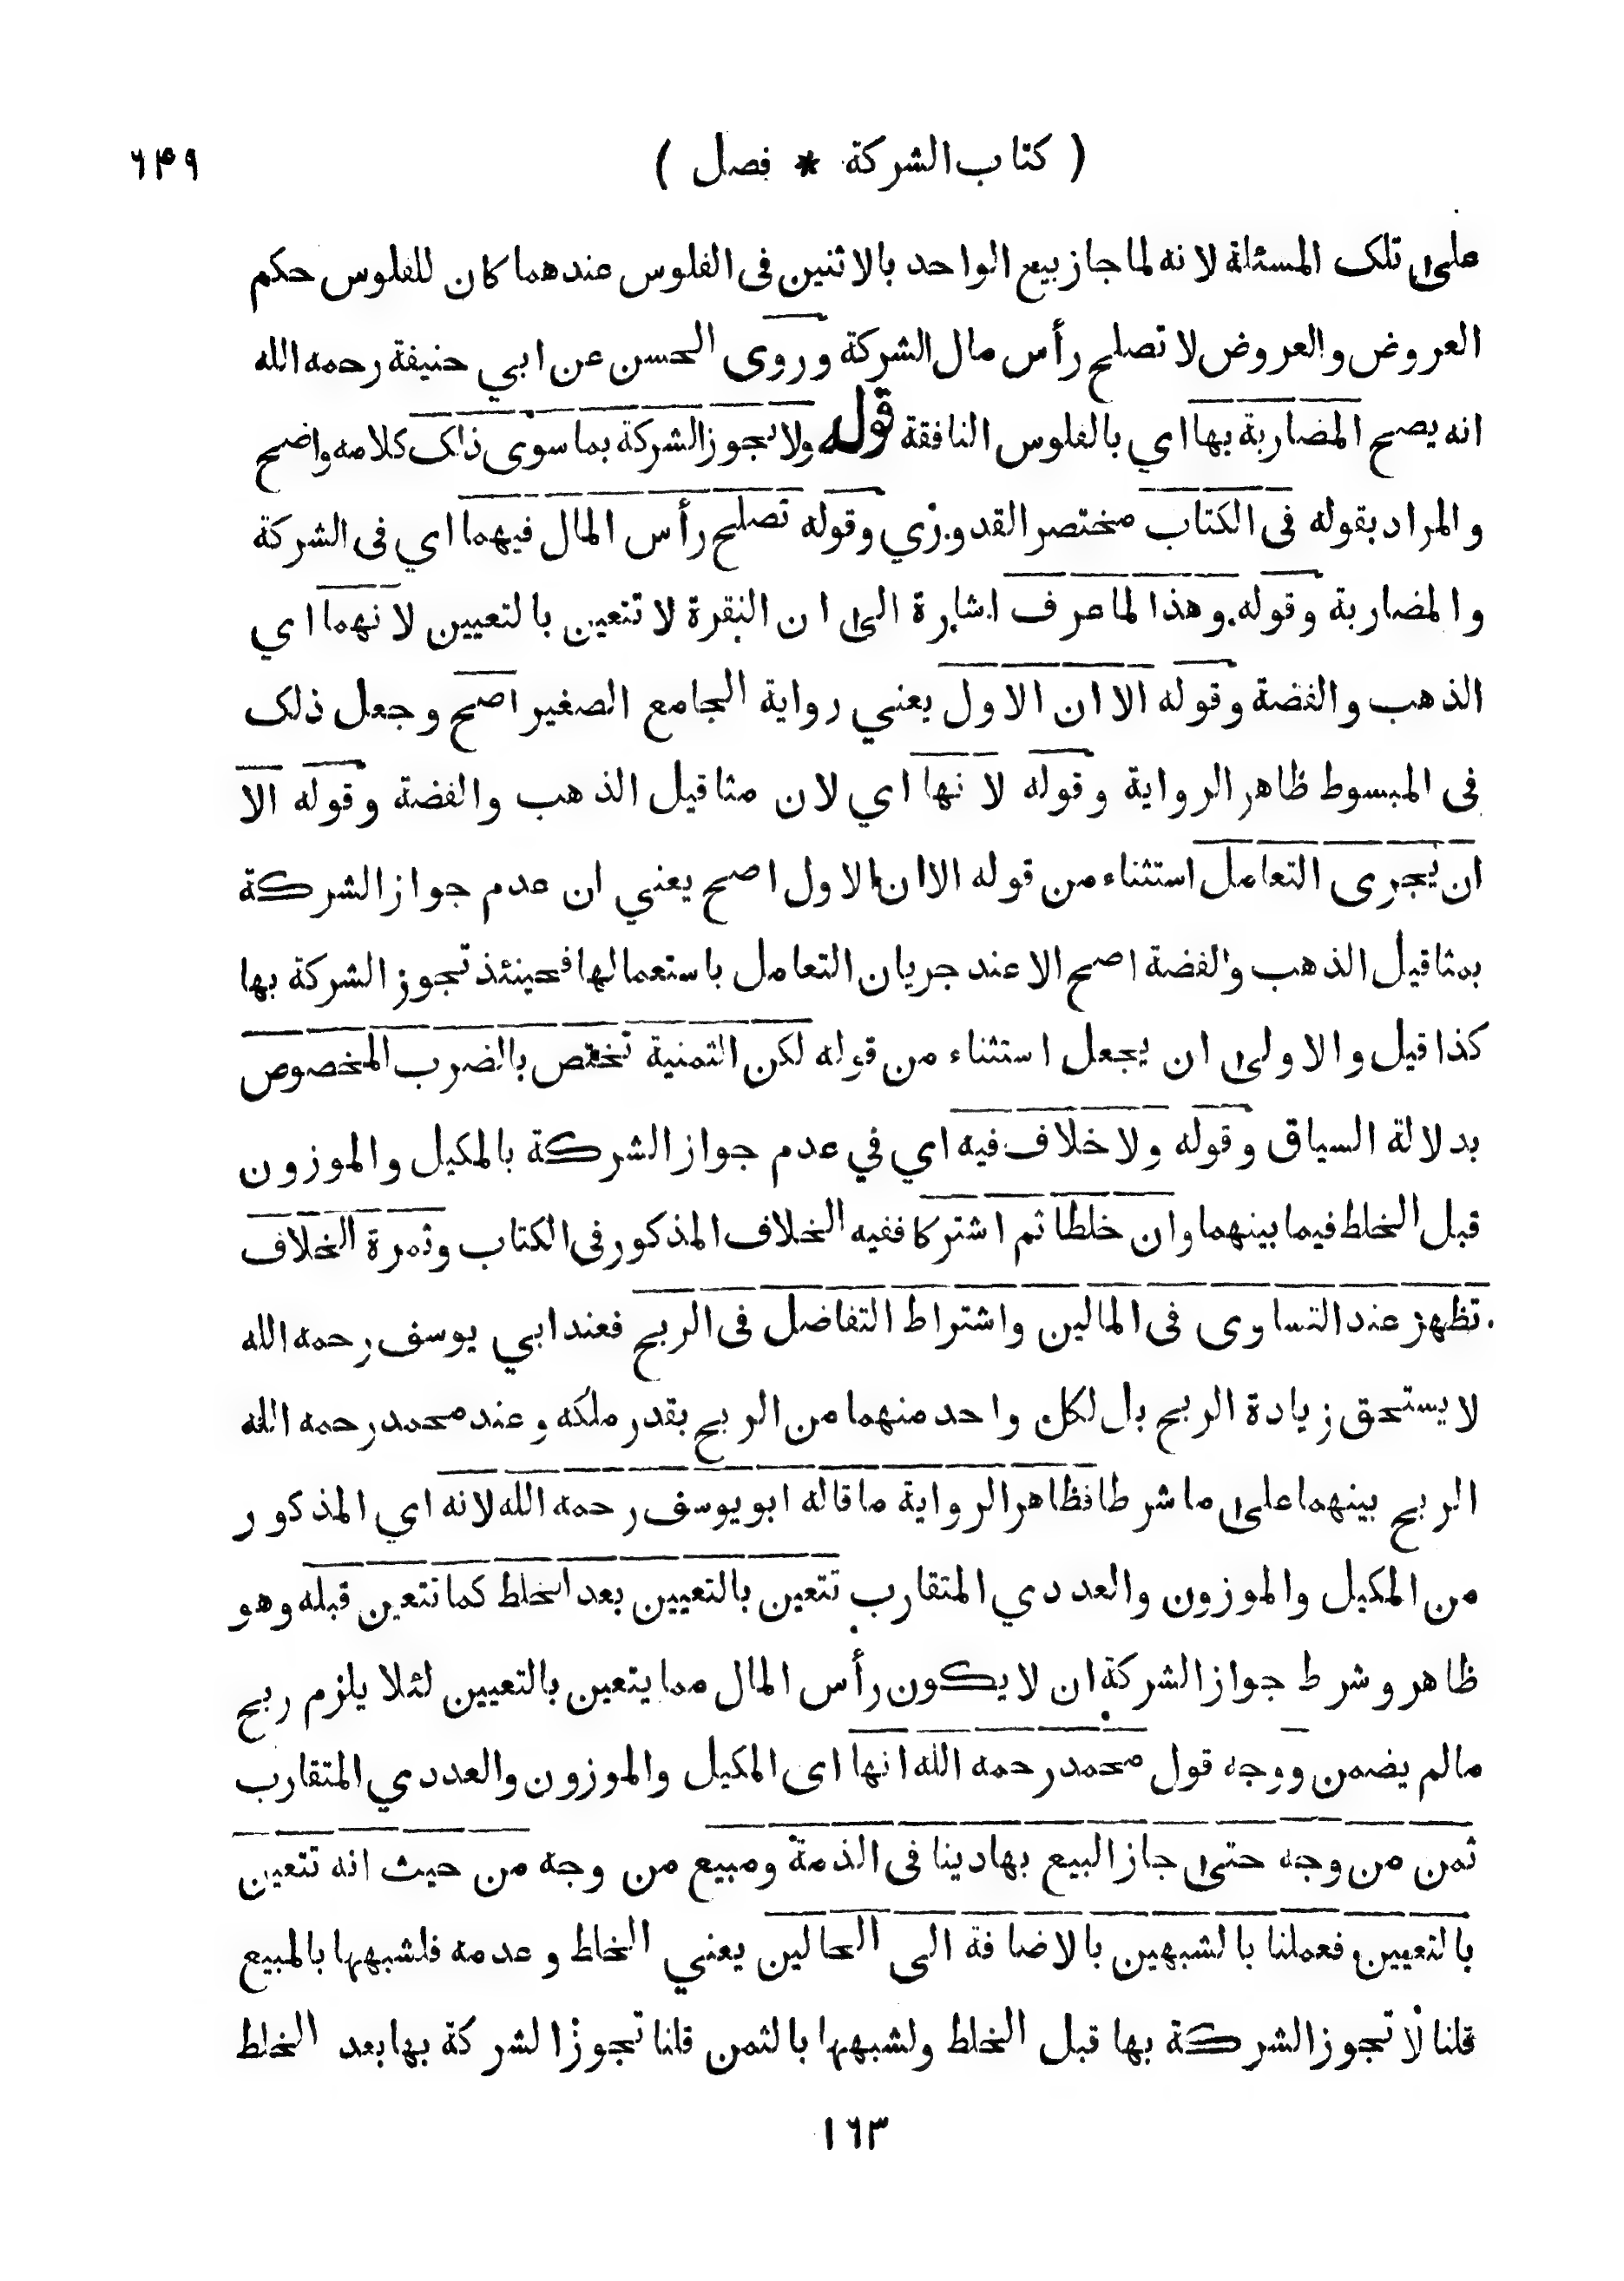 ( كتاب الشركة * فصل ) ٦٤٩
على تلك المسئلة لانه لما جاز بيع الواحد بالاثنين فى الفلوس عندهما كان للفلوس حكم
العروض والعروض لا تصلح رأس مال الشركة وروى الحسن عن ابي حنيفة رحمه الله
انه يصح المضاربة بها اي بالفلوس النافقة قوله ولا يجوز الشركة بما سوى ذلك كلامه واضح
والمراد بقوله فى الكتاب مختصر القدوري وقوله تصلح رأس المال فيهما اي فى الشركة
والمضاربة وقوله وهذا لما عرف اشارة الى ان النقرة لا تتعين بالتعيين لانهما اي
الذهب والفضة وقوله الا ان الاول يعني رواية الجامع الصغير اصح وجعل ذلك
فى المبسوط ظاهر الرواية وقوله لانها اي لان مثاقيل الذهب والفضة وقوله الا
ان يجرى التعامل استثناء من قوله الا ان الاول اصح يعني ان عدم جواز الشركة
بمثاقيل الذهب والفضة اصح الا عند جريان التعامل باستعمالها فحينئذ تجوز الشركة بها
كذا قيل والاولى ان يجعل استثناء من قوله لكن الثمنية تختص بالضرب المخصوص
بدلالة السياق وقوله ولا خلاف فيه اي في عدم جواز الشركة بالمكيل والموزون
قبل الخلط فيما بينهما وان خلطا ثم اشتركا ففيه الخلاف المذكور فى الكتاب وثمرة الخلاف
تظهر عند التساوى فى المالين واشتراط التفاضل فى الربح فعند ابي يوسف رحمه الله
لا يستحق زيادة الربح بل لكل واحد منهما من الربح بقدر ملكه وعند محمد رحمه الله
الربح بينهما على ما شرطا فظاهر الرواية ما قاله ابو يوسف رحمه الله لانه اي المذكور
من المكيل والموزون والعددي المتقارب تتعين بالتعيين بعد الخلط كما تتعين قبله وهو
ظاهر وشرط جواز الشركة ان لا يكون رأس المال مما يتعين بالتعيين لئلا يلزم ربح
مالم يضمن ووجه قول محمد رحمه الله انها اى المكيل والموزون والعددي المتقارب
ثمن من وجه حتى جاز البيع بها دينا فى الذمة ومبيع من وجه من حيث انه تتعين
بالتعيين فعملنا بالشبهين بالاضافة الى الحالين يعني الخلط وعدمه فلشبهها بالمبيع
قلنا لا تجوز الشركة بها قبل الخلط ولشبهها بالثمن قلنا تجوز الشركة بها بعد الخلط
١٦٣